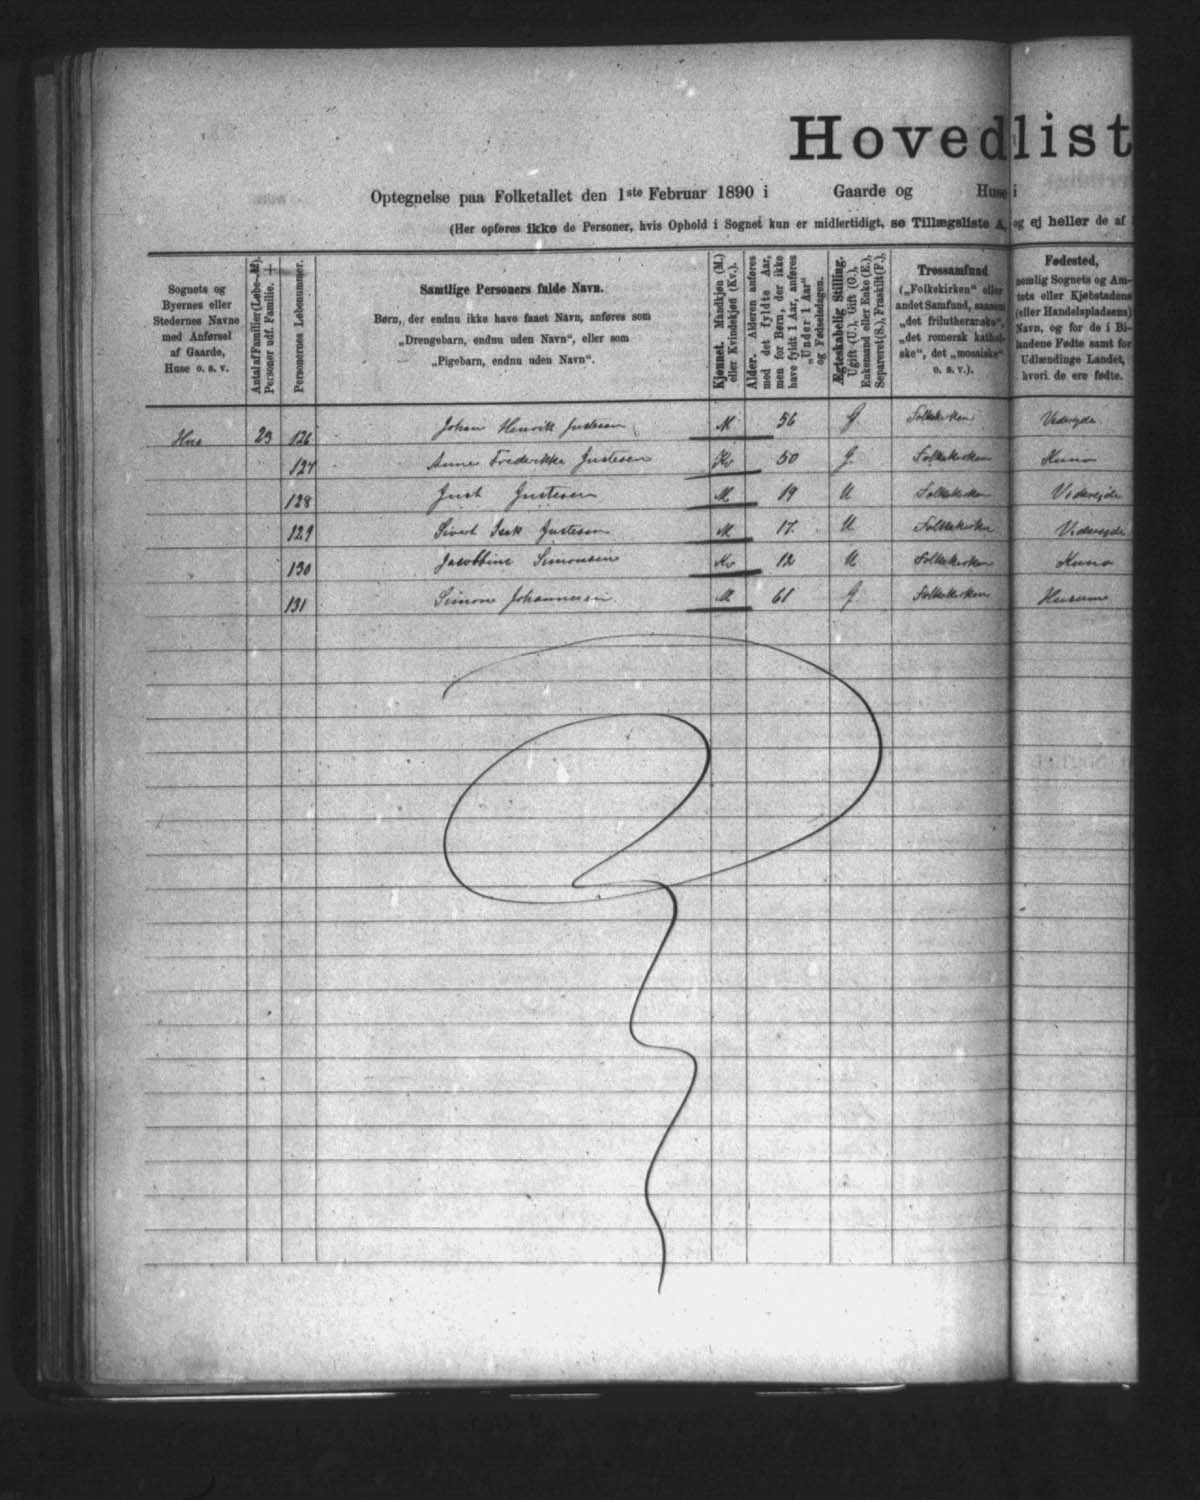 Hovedlist
Optegnelse paa Folketallet den 1ste Februar 1890 i Gaarde og Huse i
(Her opføres ikke de Personer, hvis Ophold i Sognet kun er midlertidigt, se Tillægsliste A, og ej heller de af
Sognets og
Byernes eller
Stedernes Navne
med Anførsel
af Gaarde,
Huse o. s. v.
Antal af Familier (Løbe-№).
Personer udf. Familie.
Personernes Løbenummer.
Samtlige Personers fulde Navn.
Børn, der endnu ikke have faaet Navn, anføres som
„Drengebarn, endnu uden Navn“, eller som
„Pigebarn, endnu uden Navn“.
Kjønnet. Mandkjøn (M.)
eller Kvindekjøn (Kv.).
Alder. Alderen anføres
med det fyldte Aar,
men for Børn, der ikke
have fyldt 1 Aar, anføres
„Under 1 Aar“
og Fødselsdagen.
Ægteskabelig Stilling.
Ugift (U.), Gift (G.),
Enkemand eller Enke (E.),
Separeret (S.), Fraskilt (F.).
Trossamfund
(„Folkekirken“ eller
andet Samfund, saasom
„det frilutheranske“,
„det romersk kathol-
ske“, det „mosaiske“
o. s. v.).
Fødested,
nemlig Sognets og Am-
tets eller Kjøbstadens
(eller Handelspladsens)
Navn, og for de i Bi-
landene Fødte samt for
Udlændinge Landet,
hvori de ere fødte.
Hus 23 126 Johan Henrik Justesen M 56 G Folkekirken Viderejde
127 Anne Frederikke Justesen Kv 50 G Folkekirken Kunø
128 Just Justesen M 19 U Folkekirken Viderejde
129 Sivert Justesen M 17 U Folkekirken Viderejde
130 Simonsen Kv 12 U Folkekirken Kunø
131 Simon Johannesen M 61 G Folkekirken Husum